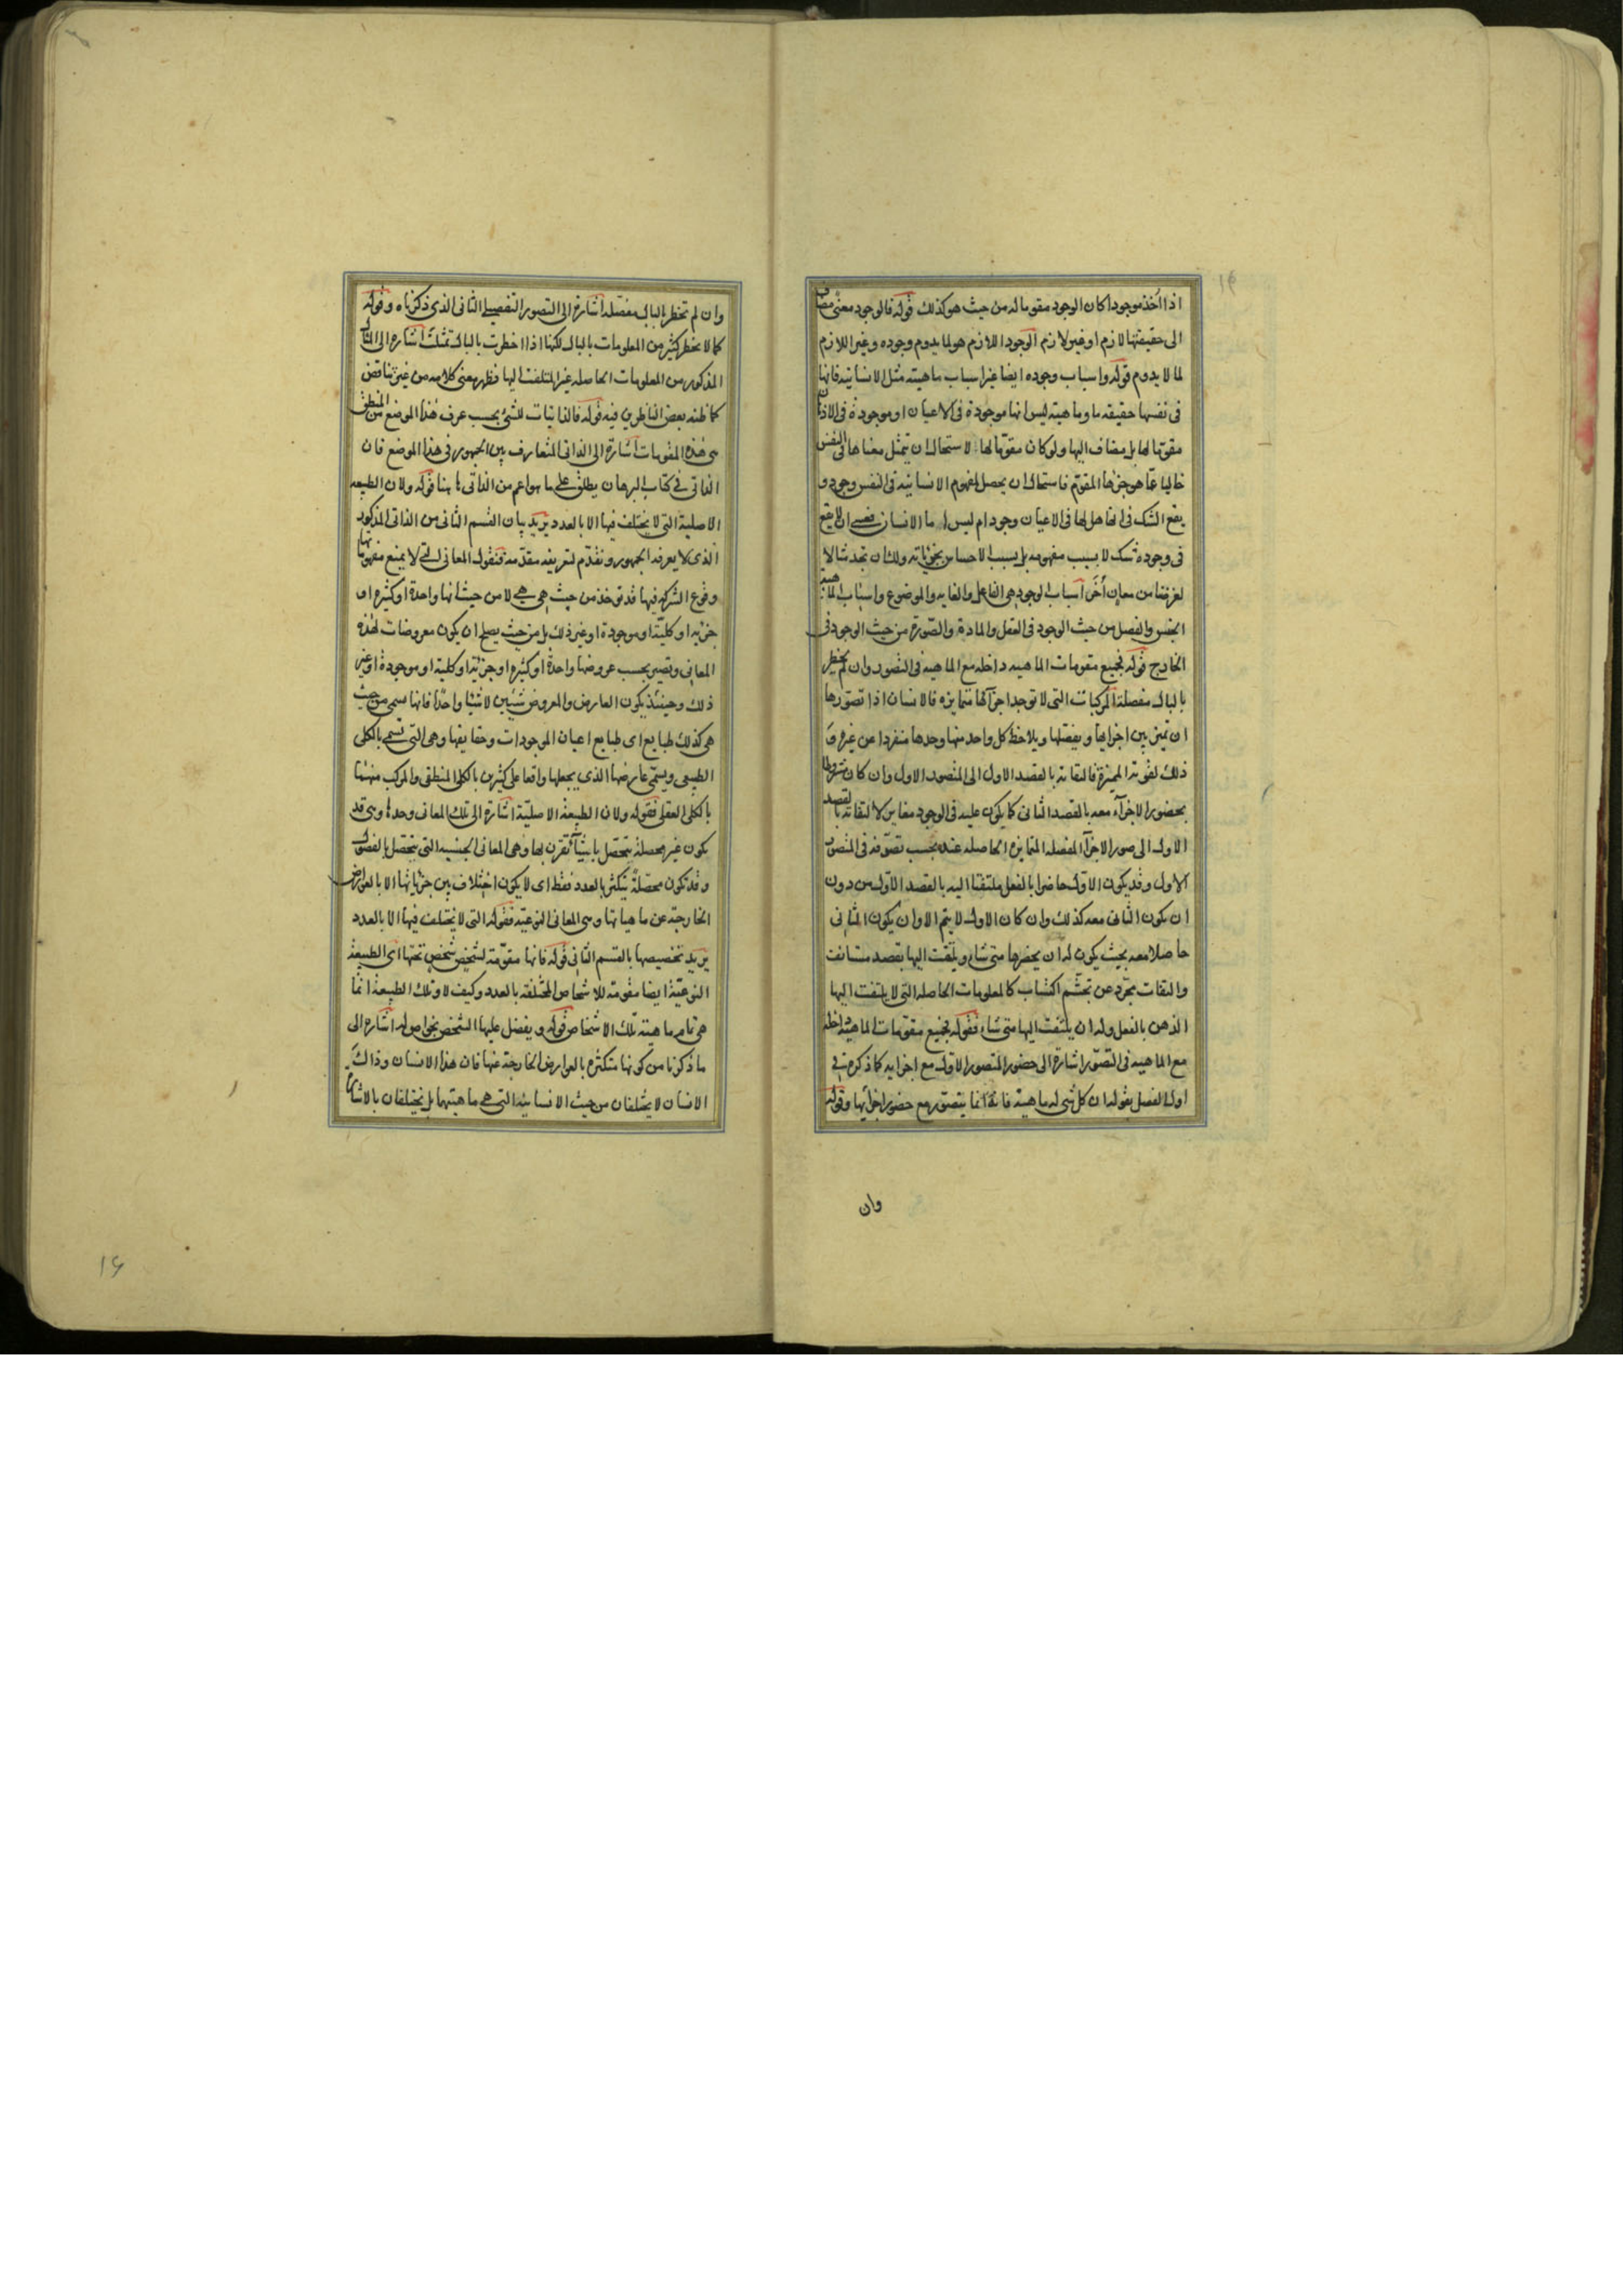 اذا اُخذ موجودا كان الوجود مقوما له من حيث هو كذلك قوله فالوجود معنى مضاف
الى حقيقتها لازم او غير لازم الوجود اللازم هو لما يدوم وجوده وغير اللازم
لما لا يدوم قوله واسباب وجوده ايضا غير اسباب ماهيته مثل الانسانية فانها
فى نفسها حقيقة ما وماهية ليس انها موجودة فى الاعيان او موجودة فى الاذهان
مقومًا لها بل مضاف اليها ولو كان مقوما لها لاستحال ان يتمثل معناها فى النفس
خاليا عمّا هو جزءها المقوّم فاستحال ان يحصل لمفهوم الانسانية فى النفس وجود و
يقع الشك فى انها هل لها فى الاعيان وجود ام ليس اما الانسان فعسى ان لا يقع
فى وجوده شك لا بسبب مفهومه بل بسبب الاحساس بجزئياته ولك ان تجد مثالا
لغرضنا من معانٍ اُخَر اسباب الوجود هى الفاعل والغاية والموضوع واسباب الماهية
الجنس والفصل من حيث الوجود فى العقل والمادة والصّورة من حيث الوجود فى
الخارج قوله فجميع مقومات الماهية داخلة مع الماهية فى التصور وان لم يخطر
بالبال مفصلة المركبات التى لا توجد اجزاؤها متمايزة فالانسان اذا تصوّرها
ان تميّز بين اجزائها ويفصّلها ويلاحظ كل واحد منها وحدها منفردا عن غيره وَ
ذلك لقوته المميزة فالتفاته بالقصد الاول الى المتصور الاول وان كان مشروطا
بحضور الاجزآء معه بالقصد الثانى كما يكون عليه فى الوجود مغاير لالتفاته بالقصد
الاول الى صور الاجزآ المفصلة المتمايزة الحاصلة عنده بحسب تصرّفه فى المتصور
الاول وقد يكون الاوّل حاضرا بالفعل ملتفتا اليه بالقصد الاوّل من دون
ان يكون الثانى معه كذلك وان كان الاول لا يتم الا وان يكون الثانى
حاصلا معه بحيث يكون له ان يحضرها متى شاء ويلتفت اليها بقصد مستانف
والتفات مجرّد عن تجشّم اكتساب كالمعلومات الحاصلة التى لا يلتفت اليها
الذهن بالفعل وله ان يلتفت اليها متى شاء فقوله فجميع مقوّمات الماهية داخلة
مع الماهية فى التصوّر اشارة الى حضور المتصور الاول مع اجزايه كما ذكره فى
اول الفصل بقوله ان كل شى له ماهية فانه انما يتصور مع حضور اجزآئها وقوله
وان
وان لم تخطر بالبال مفصّلة اشارة الى التصور التفصيلى الثانى الذى ذكرناه وقوله
كما لا يخطر كثير من المعلومات بالبال لكنها اذا اخطرت بالبال تمثلت اشارة الى الثانى
المذكور من المعلومات الحاصلة غير الملتفت اليها فظهر معنى كلامه من غير تناقض
كما ظنه بعض الناظرين فيه قوله فالذاتيات للشئ بحسب عرف هذا الموضع من المنطق
هى هذه المقومات اشارة الى الذاتى المتعارف بين الجمهور فى هذا الموضع فان
الذاتى فى كتاب البرهان يطلق على ما هو اعم من الذاتى ههنا قوله ولان الطبيعة
الاصلية التى لا يختلف فيها الا بالعدد يريد بيان القسم الثانى من الذاتى المذكور
الّذى لا يعرفه الجمهور ونقدّم لتعريفه مقدّمة فنقول المعانى التى لا يمنع مفهوماتها
وقوع الشركة فيها قد تؤخذ من حيث هى هى لا من حيث انها واحدة او كثيرة او
جزئية او كليّة او موجودة او غير ذلك بل من حيث يصلح ان يكون معروضات لهذه
المعانى وتصير بحسب عروضها واحدة او كثيرة او جزئية او كلية او موجودة او غير
ذلك وحينئذ يكون العارض والمعروض شيئين لا شيئا واحدًا فانها تسمى من حيث
هى كذلك طبايع اى طبايع اعيان الموجودات وحقايقها وهى التى تسمى بالكلى
الطبيعى ويسمّى عارضها الذى يجعلها واقعا على كثيرين بالكلى المنطقى والمركب منهما
بالكلى العقلى فقوله ولان الطبيعة الاصليّة اشارة الى تلك المعانى وحدها وهى قد
يكون غير محصلة تتحصّل باشيآء تقرن بها وهى المعانى الجنسية التى يتحصل بالفصول
وقد تكون محصّلةً يتكثر بالعدد فقط اى لا يكون اختلاف بين جزئياتها الا بالعوارض
الخارجة عن ماهياتها وهى المعانى النوعيّة فقوله التى لا يختلف فيها الا بالعدد
يريد تخصيصها بالقسم الثانى قوله فانها مقوّمة لشخص شخصٍ تحتها اى الطبيعة
النوعيّة ايضا مقومة للاشخاص المختلفة بالعدد وكيف لا وتلك الطبيعة انما
هى تمام ماهية تلك الاشخاص قوله ويفضل عليها الشخص بخواص له اشارة الى
ما ذكرنا من كونها متكثرة بالعوارض الخارجة عنها فان هذا الانسان وذاك
الانسان لا يختلفان من حيث الانسانية التى هى ماهيتهما بل يختلفان بالاشارة
۱۶